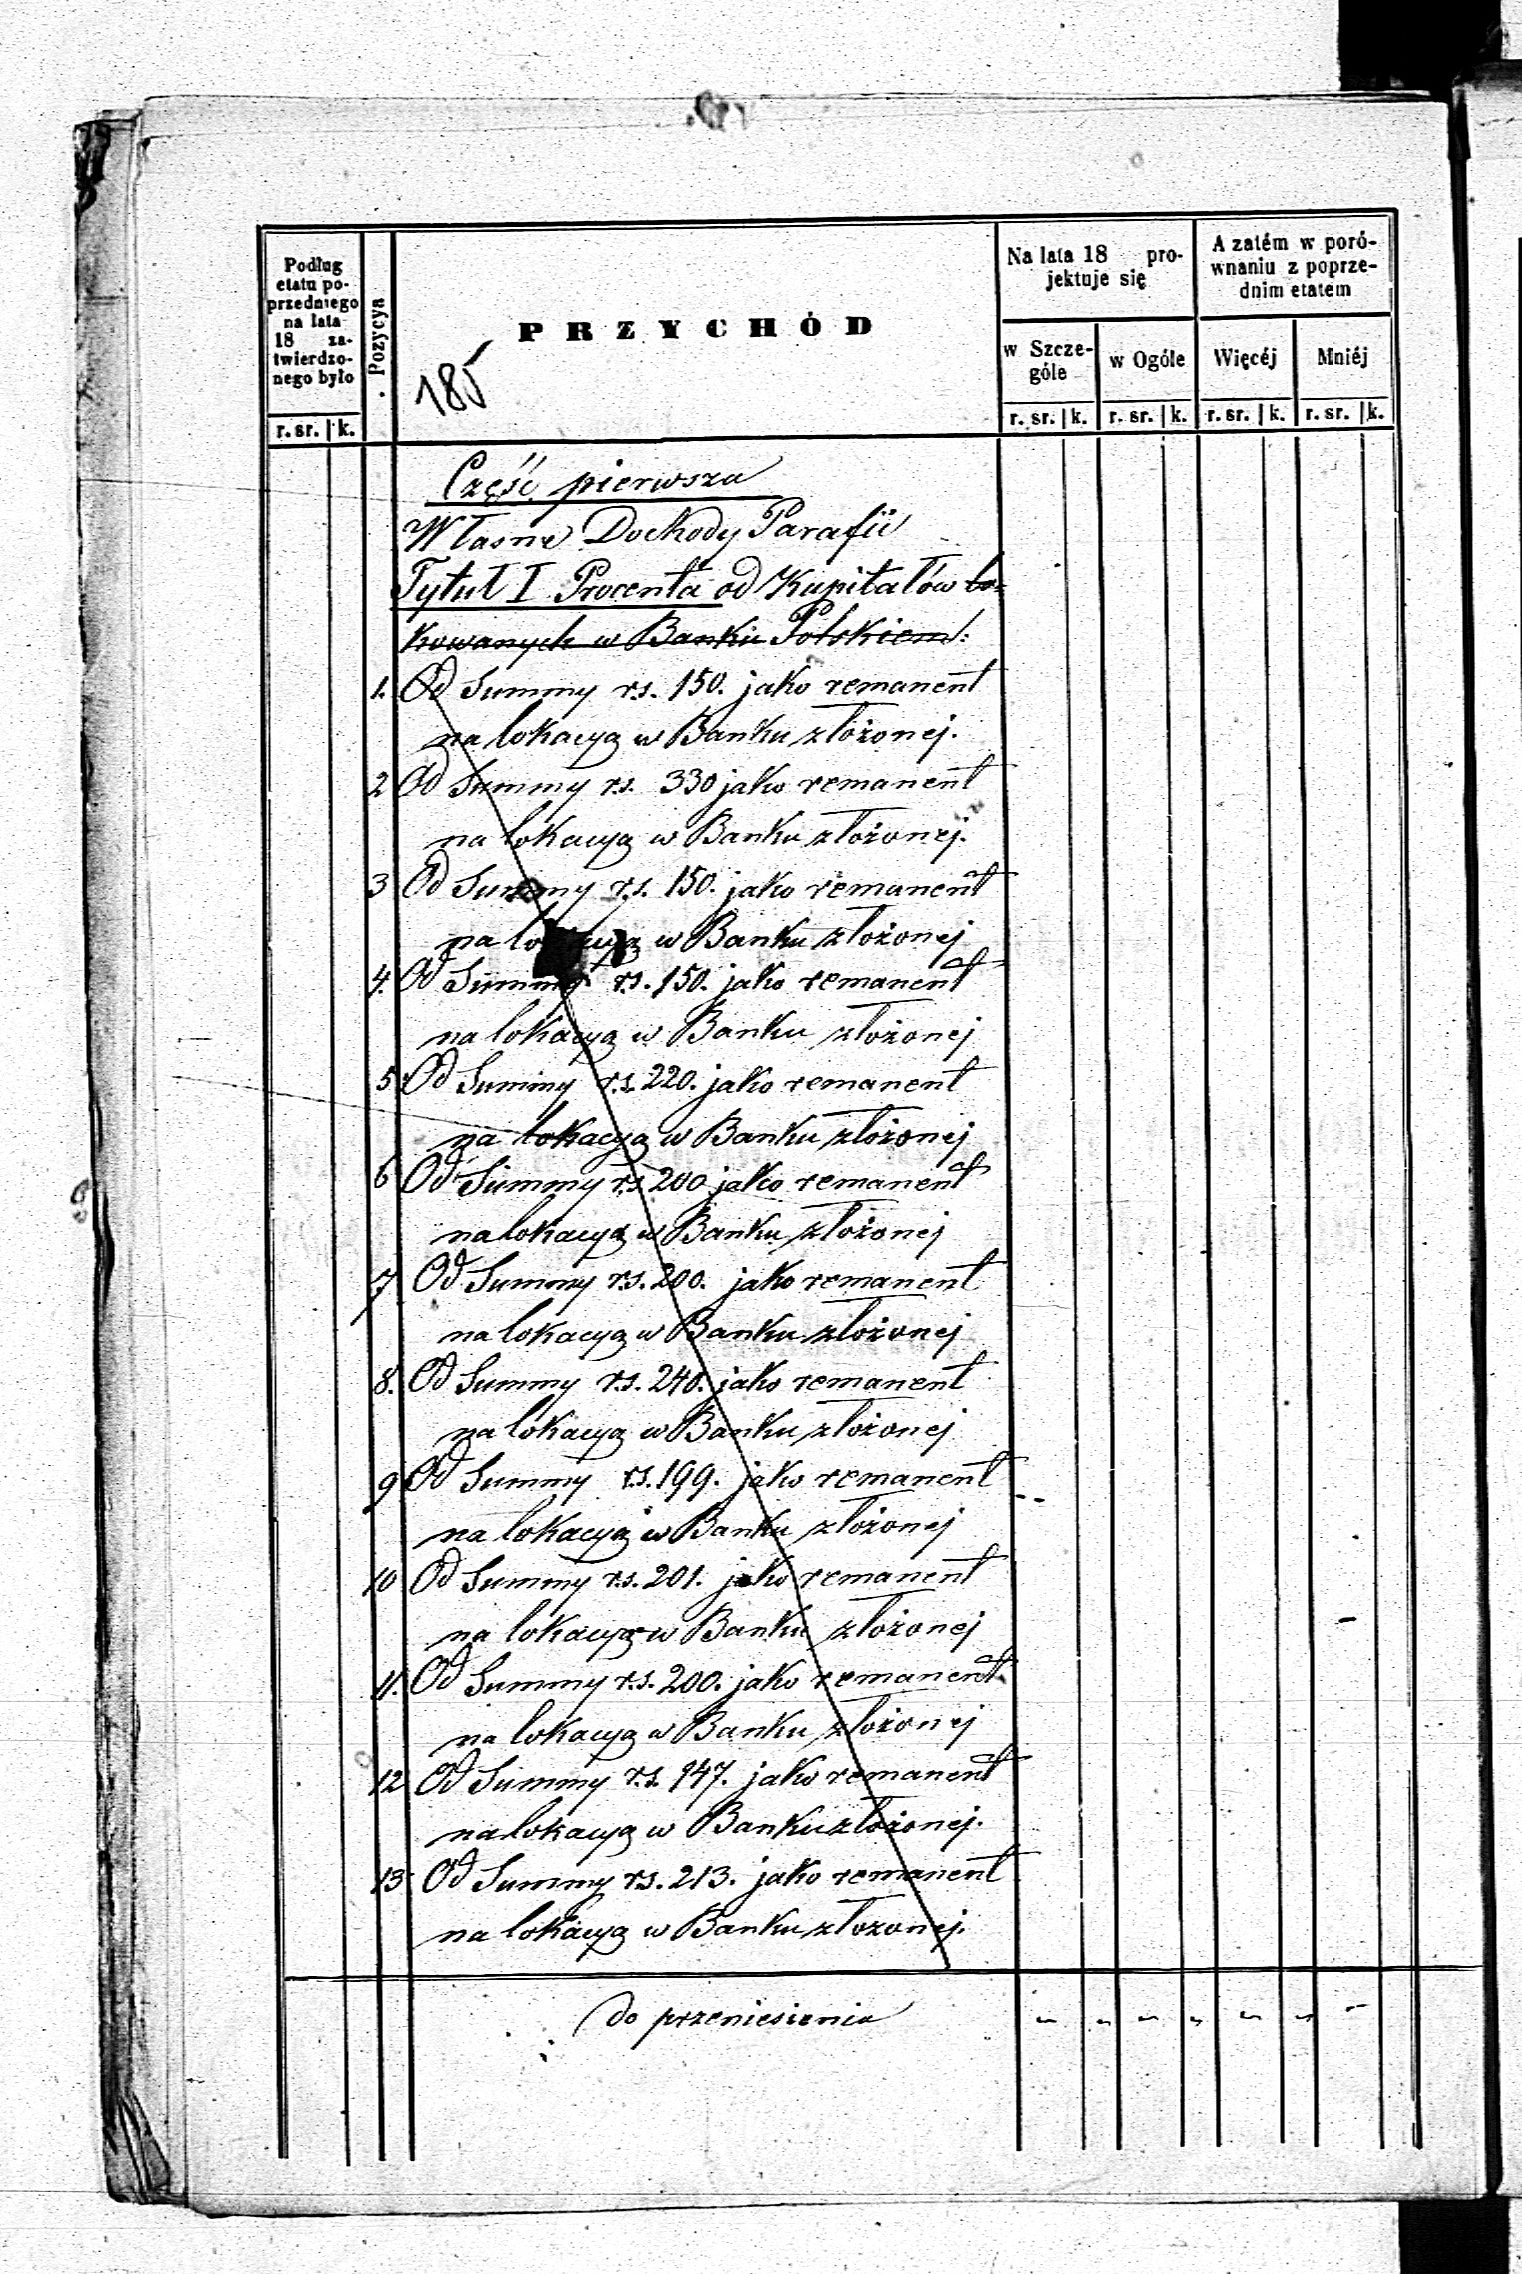 Podług
etatu po-
przedniego
na lata
18 za-
twierdzo-
nego było
r. sr. k.
Pozycya
PRZYCHÓD
185
Na lata 18 pro-
jektuje się
w Szcze-
góle
r. sr. k.
w Ogóle
r. sr. k.
A zatém w poró-
wnaniu z poprze-
dnim etatem
Więcéj
r. sr. k.
Mniéj
r. sr. k.
Część pierwsza
Własne Dochody Parafii
Tytuł I Procenta od Kapitałów lo-
kowanych w Banku Polskiem:
1. Od Summy r.s. 150. jako remanent
na lokacyą w Banku złożonej.
2 Od Summy r.s. 330 jako remanent
na lokacyą w Banku złożonej.
3 Od Summy r.s. 150. jako remanent
na lokacyą w Banku złożonej
4. Od Summy r.s. 150. jako remanent
na lokacyą w Banku złożonej
5 Od Summy r.s. 220. jako remanent
na lokacyą w Banku złożonej
6 Od Summy r.s. 200 jako remanent
na lokacyą w Banku złożonej
7 Od Summy r.s. 200. jako remanent
na lokacyą w Banku złożonej
8. Od Summy r.s. 240. jako remanent
na lokacyą w Banku złożonej
9 Od Summy r.s. 199. jako remanent
na lokacyą w Banku złożonej
10 Od Summy r.s. 201. jako remanent
na lokacyą w Banku złożonej
11. Od Summy r.s. 200. jako remanent
na lokacyą w Banku złożonej
12 Od Summy r.s. 147. jako remanent
na lokacyą w Banku złożonej.
13 Od Summy r.s. 213. jako remanent
na lokacyą w Banku złożonej.
do przeniesienia